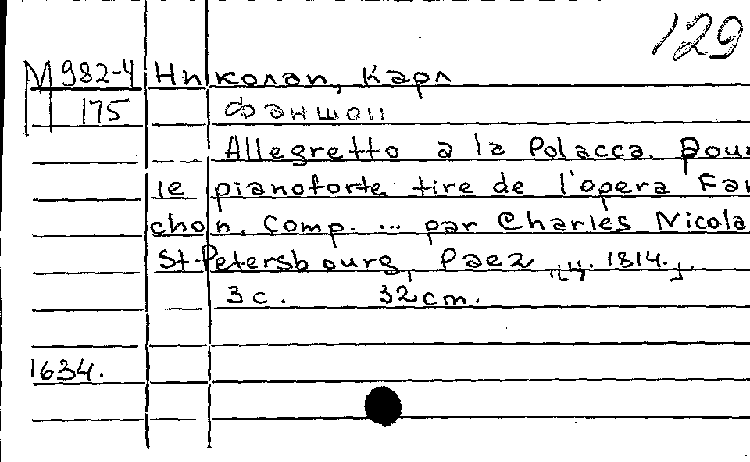 129
М 982-4 Николаи, Карл
175 Фаншон
Allegretto a la Polacca pour
le pianoforte tire de l'opera Fan
chon. Comp. ... par Charles Nicola
St-Petersbourg, Paez [ч. 1814.].
3 с. 32cm.
1634.